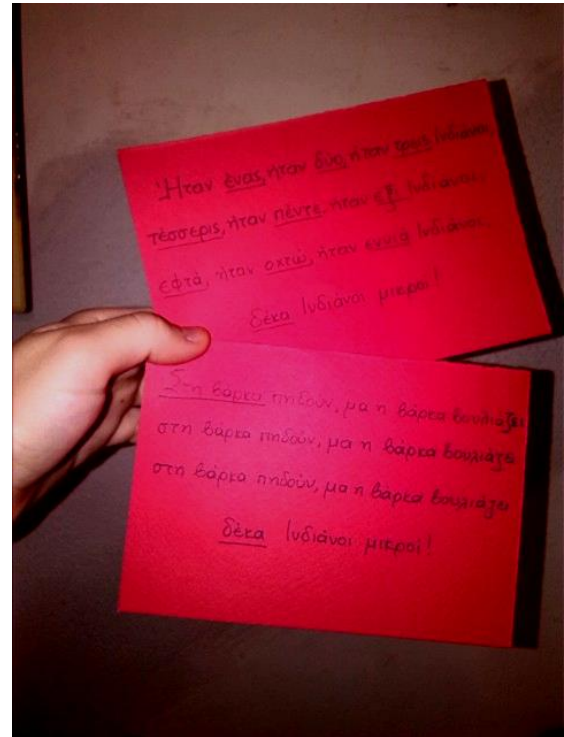 Ήταν ένας, ήταν δύο, ήταν τρεις Ινδιάνοι,
τέσσερις, ήταν πέντε, ήταν έξι Ινδιάνοι,
εφτά, ήταν οχτώ, ήταν εννιά Ινδιάνοι,
δέκα Ινδιάνοι μικροί!
Στη βάρκα πηδούν, μα η βάρκα βουλιάζει
στη βάρκα πηδούν, μα η βάρκα βουλιάζει
στη βάρκα πηδούν, μα η βάρκα βουλιάζει
δέκα Ινδιάνοι μικροί!